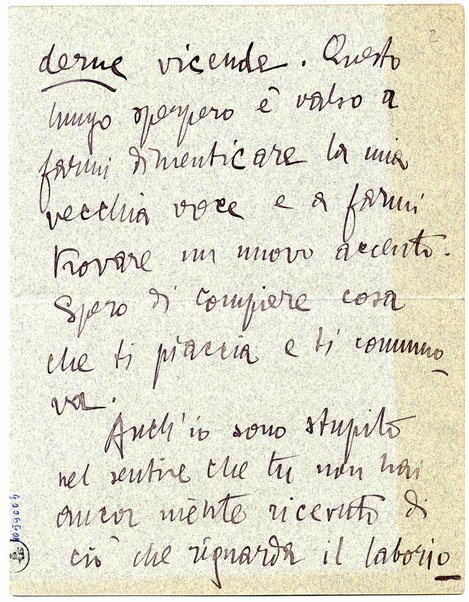 2
derne vicende. Questo
lungo spergero è valso a
farmi dimenticare la mia
vecchia voce e a farmi
trovare un nuovo accento.
Spero di compiere cosa
che ti piaccia e ti commuo
va.
Anch'io sono stupito
nel sentire che tu non hai
ancor niente ricevuto di
ciò che riguarda il laborio